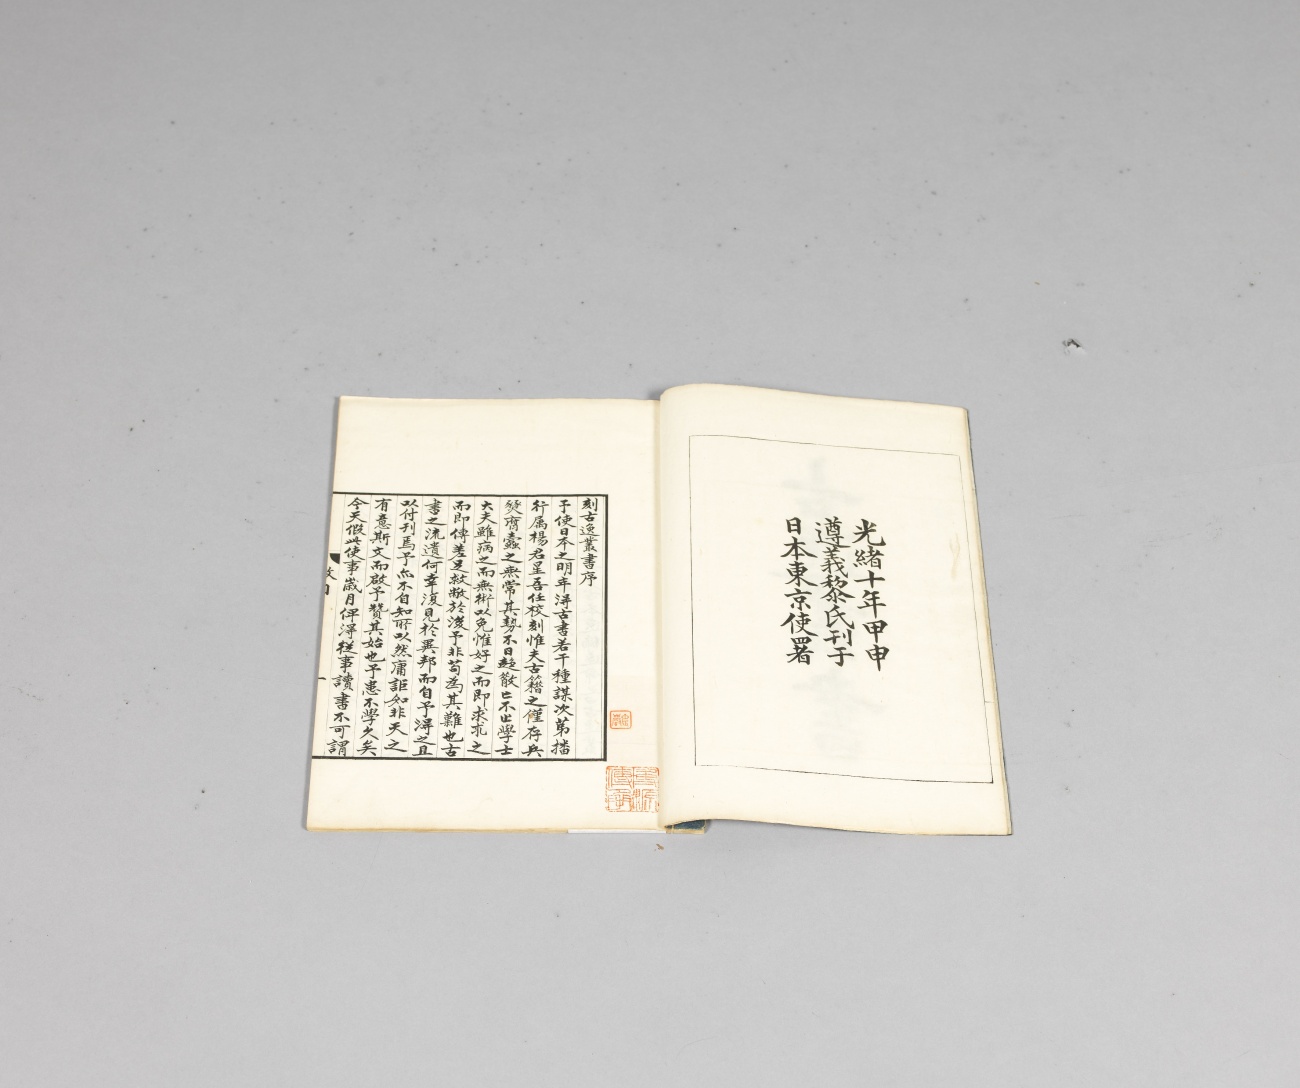 光緒十年甲申
遵義黎氏刊于
日本東京使署
刻古逸叢書序
予使日本之明年得古書若干種謀次第播
行属楊君星吾任校刻惟夫古籍之僅存兵
燹腐蠹之無常其勢不日趍散亡不止學士
大夫雖病之而無術以免惟好之而即求求之
而即傳差足救敝於後予非苟為其難也古
書之流遺何幸復見於異邦而自予得之且
以付刊焉予亦不自知所以然庸詎知非天之
有意斯文而啟予贊其始也予患不學久矣
今天假此使事歲月俾得從事讀書不可謂
敘目
一